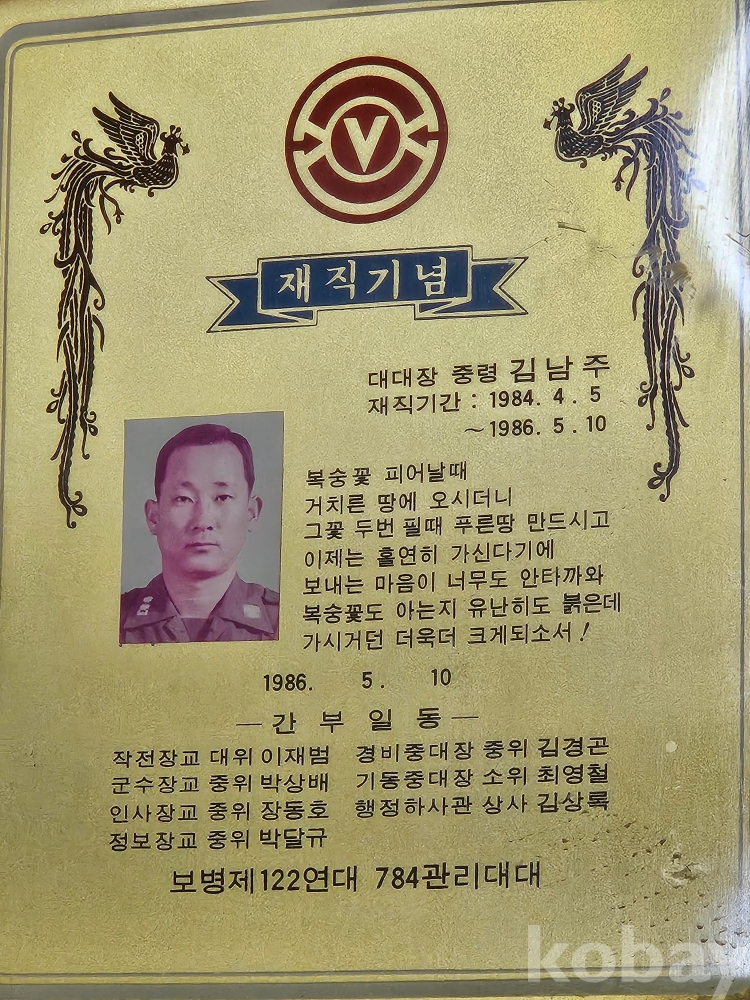 V
재직기념
대대장 중령 김남주
재직기간 : 1984. 4. 5
~1986. 5. 10
복숭꽃 피어날때
거치른 땅에 오시더니
그꽃 두번 필때 푸른땅 만드시고
이제는 홀연히 가신다기에
보내는 마음이 너무도 안타까와
복숭꽃도 아는지 유난히도 붉은데
가시거던 더욱더 크게되소서!
1986. 5. 10
—간 부 일 동—
작전장교 대위 이재범 경비중대장 중위 김경곤
군수장교 중위 박상배 기동중대장 소위 최영철
인사장교 중위 장동호 행정하사관 상사 김상록
정보장교 중위 박달규
보병제122연대 784관리대대
kobay